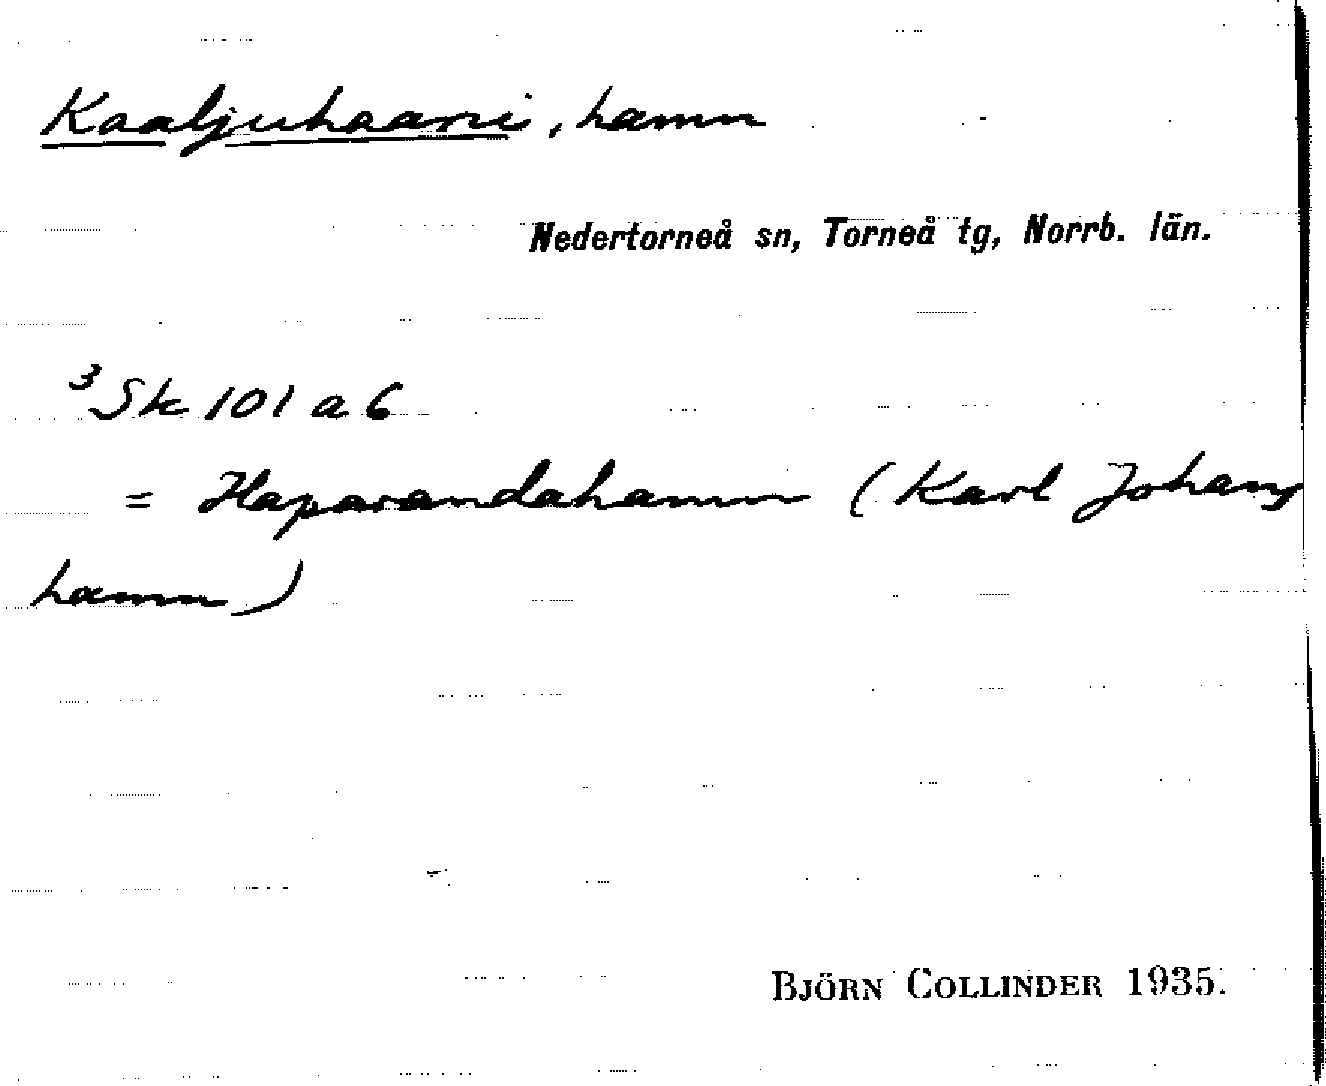 Kaaljuhaani, hamn
Nedertorneå sn, Torneå tg, Norrb. län.
³Sk 101 a 6
= Haparandahamn (Karl Johans
hamn)
BJÖRN COLLINDER 1935.